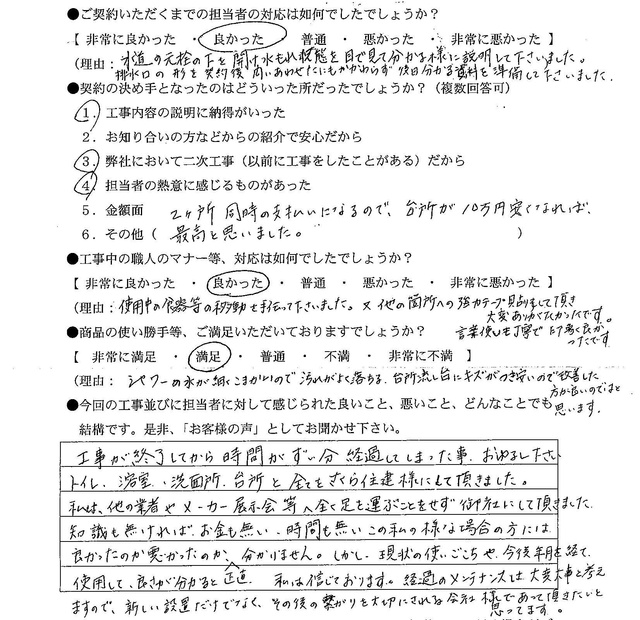 ●ご契約いただくまでの担当者の対応は如何でしたでしょうか？
【 非常に良かった ・ 良かった ・ 普通 ・ 悪かった ・ 非常に悪かった 】
（理由：水道の元栓の下を開け水もれ状態を目で見て分かる様に説明して下さいました。
排水口の形を契約後問いあわせたにもかかわらず後日分かる資料を準備して下さいました。
●契約の決め手となったのはどういった所だったでしょうか？（複数回答可）
１．工事内容の説明に納得がいった
２．お知り合いの方などからの紹介で安心だから
３．弊社において二次工事（以前に工事をしたことがある）だから
４．担当者の熱意に感じるものがあった
５．金額面 2ヶ所同時の支払いになるので、台所が10万円安くなれば、
６．その他（ 最高と思いました。 ）
●工事中の職人のマナー等、対応は如何でしたでしょうか？
【 非常に良かった ・ 良かった ・ 普通 ・ 悪かった ・ 非常に悪かった 】
（理由：使用中の食器等の移動を手伝って下さいました。又他の箇所への強力テープ貼りもして頂き
大変ありがたかったです。
●商品の使い勝手等、ご満足いただいておりますでしょうか？ 言葉使いも丁寧で とても良か
ったです
【 非常に満足 ・ 満足 ・ 普通 ・ 不満 ・ 非常に不満 】
（理由：シャワーの水が細くこまかいので汚れがよく落ちる。台所流し台にキズがつき安いので改善した
方が良いのではと
●今回の工事並びに担当者に対して感じられた良いこと、悪いこと、どんなことでも 思います。
結構です。是非、「お客様の声」としてお聞かせ下さい。
工事が終了してから時間がずい分経過してしまった事、おゆるし下さい
トイレ、浴室、洗面所、台所と全てをさくら住建様にして頂きました。
私は、他の業者やメーカー展示会等へ全く足を運ぶことをせず御社にして頂きました
知識も無ければ、お金も無い、時間も無いこの私の様な場合の方には
良かったのか悪かったのか、分かりません。しかし、現状の使いごこちや、今後年月を経て、
使用して、良さが分かると正直 私は信じております。経過のメンテナンスは大変大事と考え
ますので、新しい設置だけでなく、その後の繋がりを大切にされる会社様であって頂きたいと
思ってます。